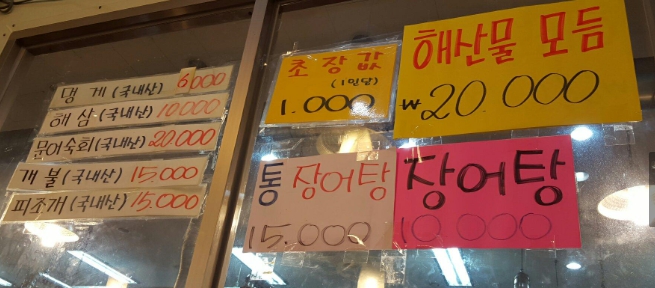 멍게(국내산) 6,000
해삼(국내산) 10,000
문어숙회(국내산) 20,000
개불(국내산) 15,000
피조개(국내산) 15,000
초장값
(1인당)
1.000
해산물 모듬
₩20.000
통장어탕
15.000
장어탕
10.000